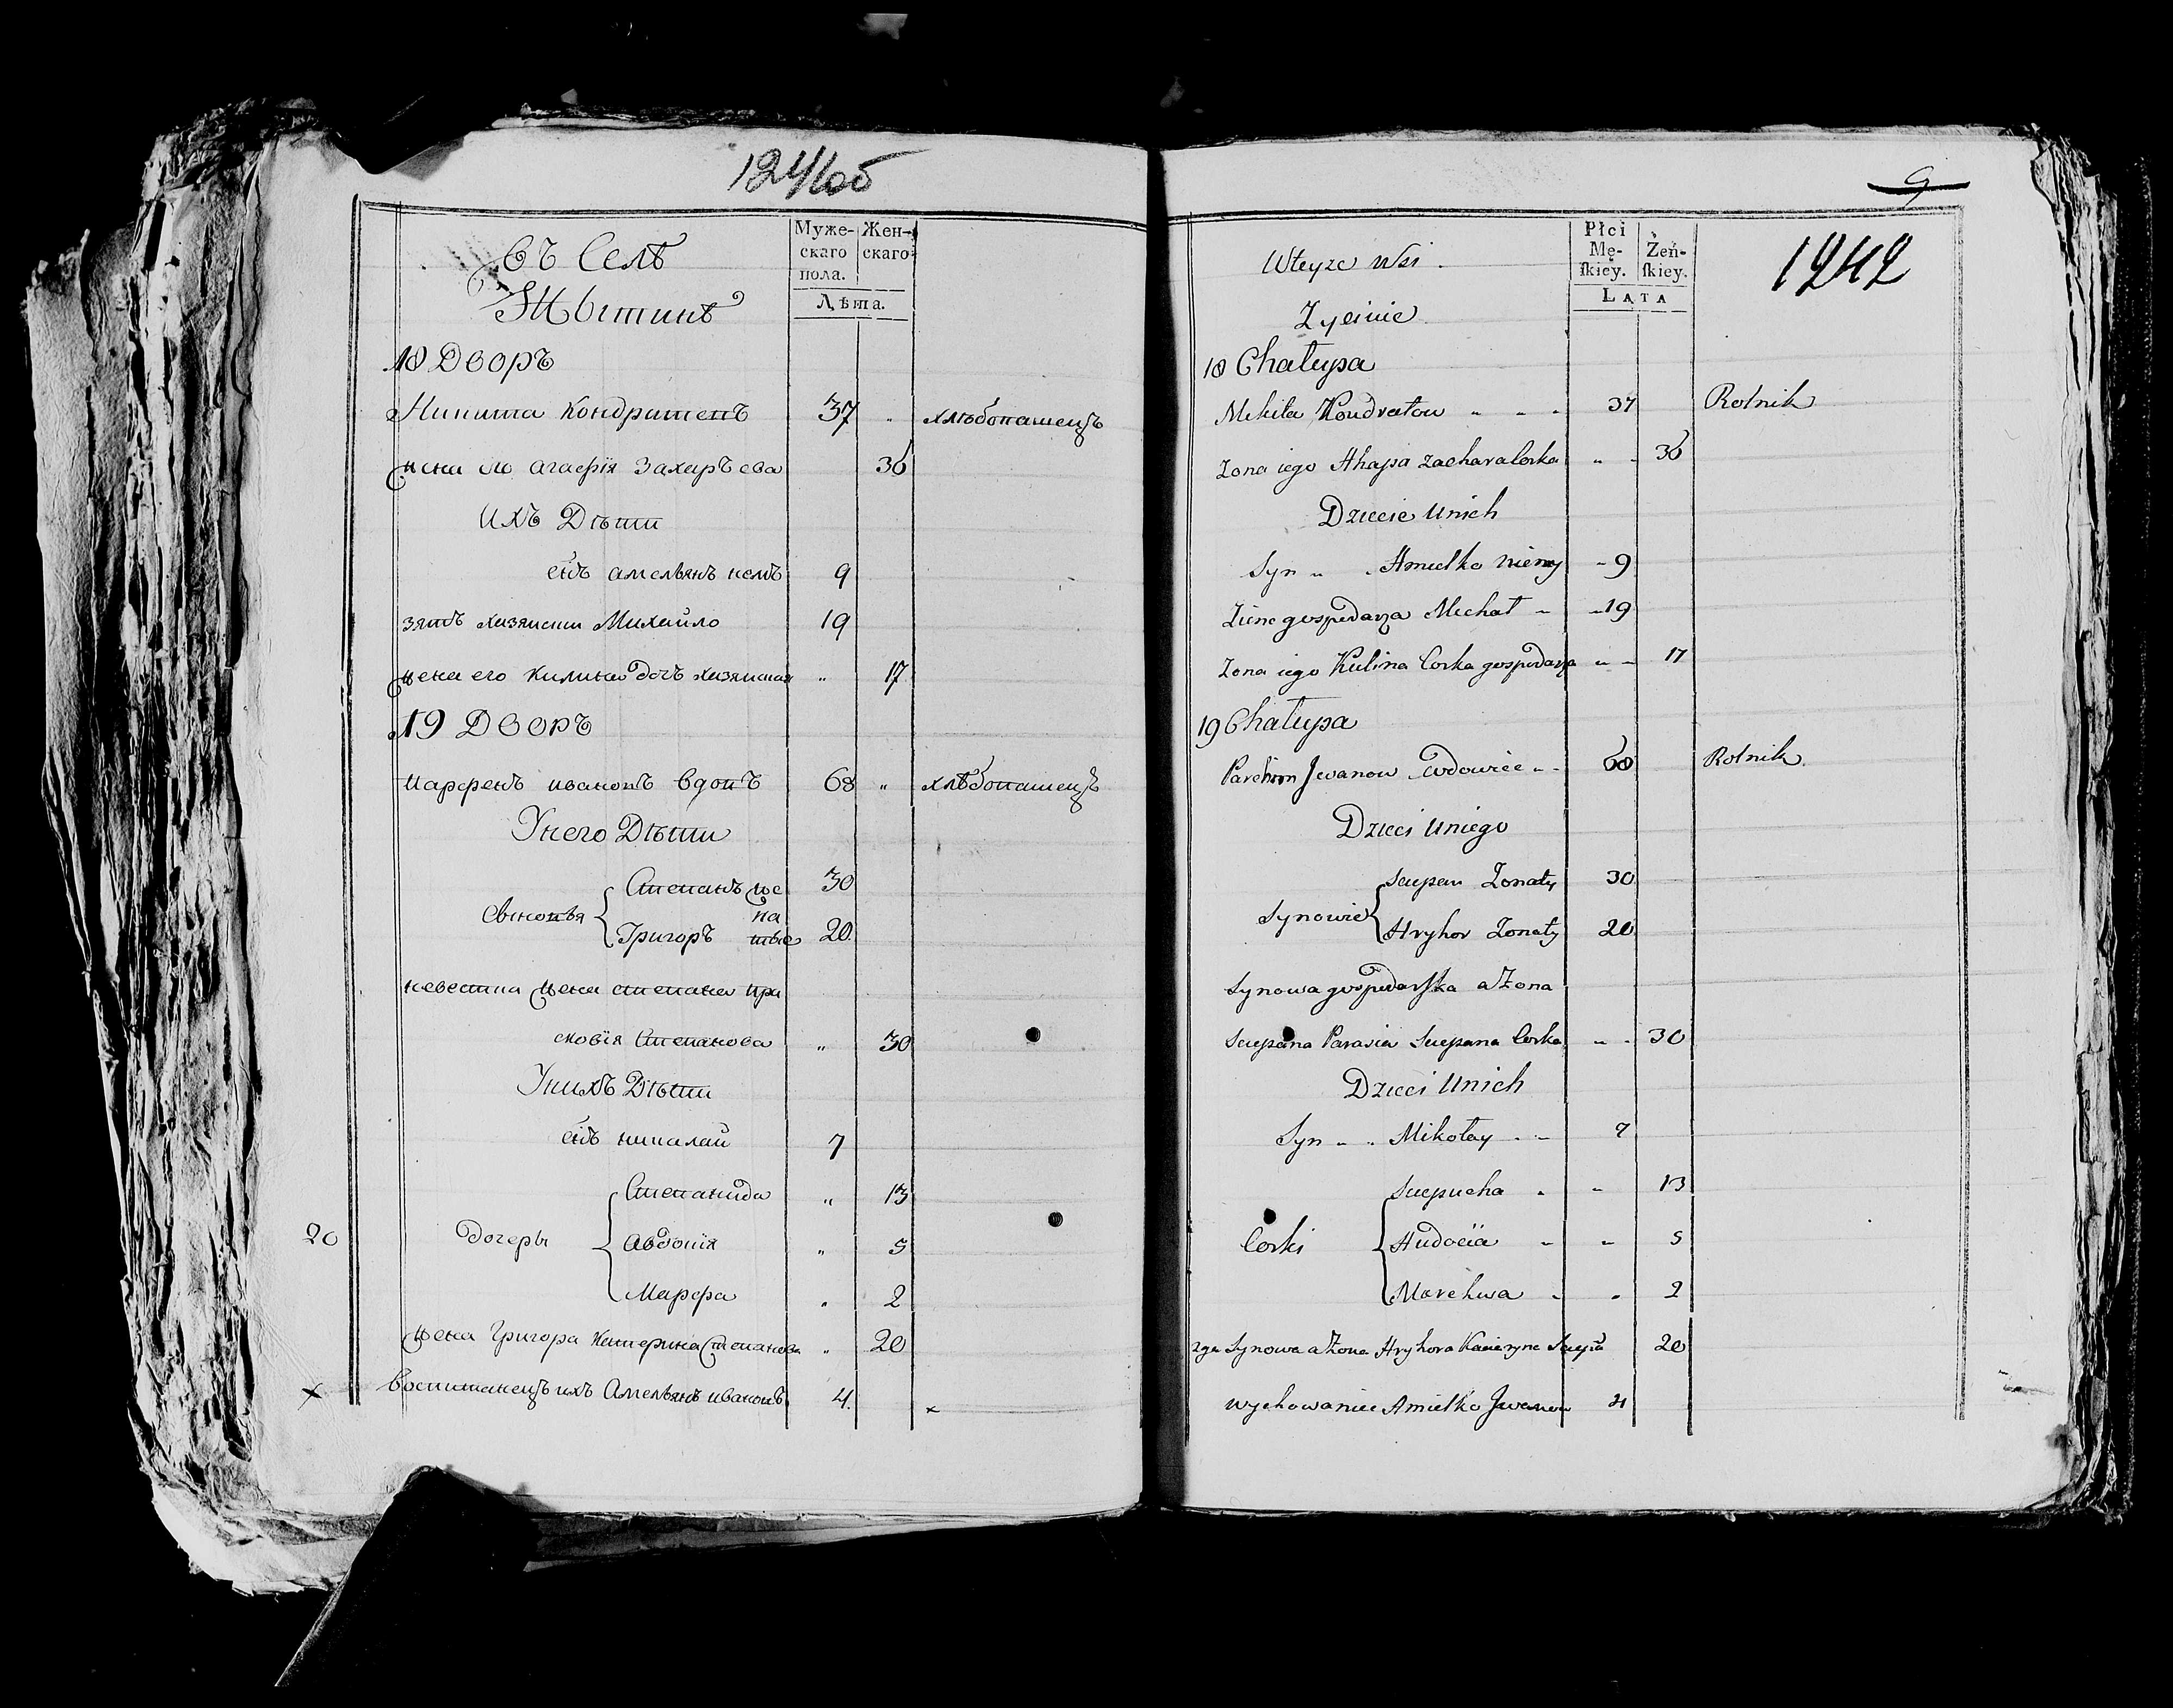 1241об
въ Селѣ
Жытинѣ
Муже-
скаго
пола.
Жен-
скаго
Лѣта.
18 Дворъ
Никита Кондратевъ 37 " хлѣбопашецъ
жена ѥго агафія Захарьева 36
Ихъ Дѣти
снъ амельянъ немъ 9
зять хазяискии Михайло 19
жена его килина дочь хазяиская " 17
19 Дворъ
парфенъ ивановъ вдовъ 68 " хлѣбопашецъ
Унего Дѣти
Степанъ же 30
Сыновья на
Григоръ тые 20
невестка жена степана пра
сковія Степанова " 30
Унихъ Дѣти
снъ николай 7
Степанида " 13
20 Дочеры Авдотія " 5
Марфа " 2
жена Григора Катерина Степанова " 20
x воспитанецъ ихъ Амельянъ ивановъ 4 x
9
1242
Wteyze Wsi
Zycinie
Płci
Mę-
skiey.
Żeń-
skiey.
LATA
18 Chałupa
Mikita Kondratow " - - 37 Rolnik
Zona iego Ahapa Zachara Corka " - 36
Dziecie Unich
Syn " Amielko niemy - 9
Zienc gospodarza Michał - - 19
Zona iego Kulina Corka gospodarza " - 17
19 Chałupa
Parchim Jwanow wdowiec - - 68 Rolnik
Dzieci Uniego
Sciepan Zonaty 30
Synowie
Hryhor Zonaty 20
Synowa gospodarska a Zona
Sciepana Parasia Sciepana Corka " - 30
Dzieci Unich
Syn - - Mikołay - - 7
Sciepucha - - 13
Corki Audocia - - 5
Marchwa - - 2
2ga Synowa a Zona Hryhora Kacieryna Sciepa 20
wychowaniec Amielko Jwanow 4